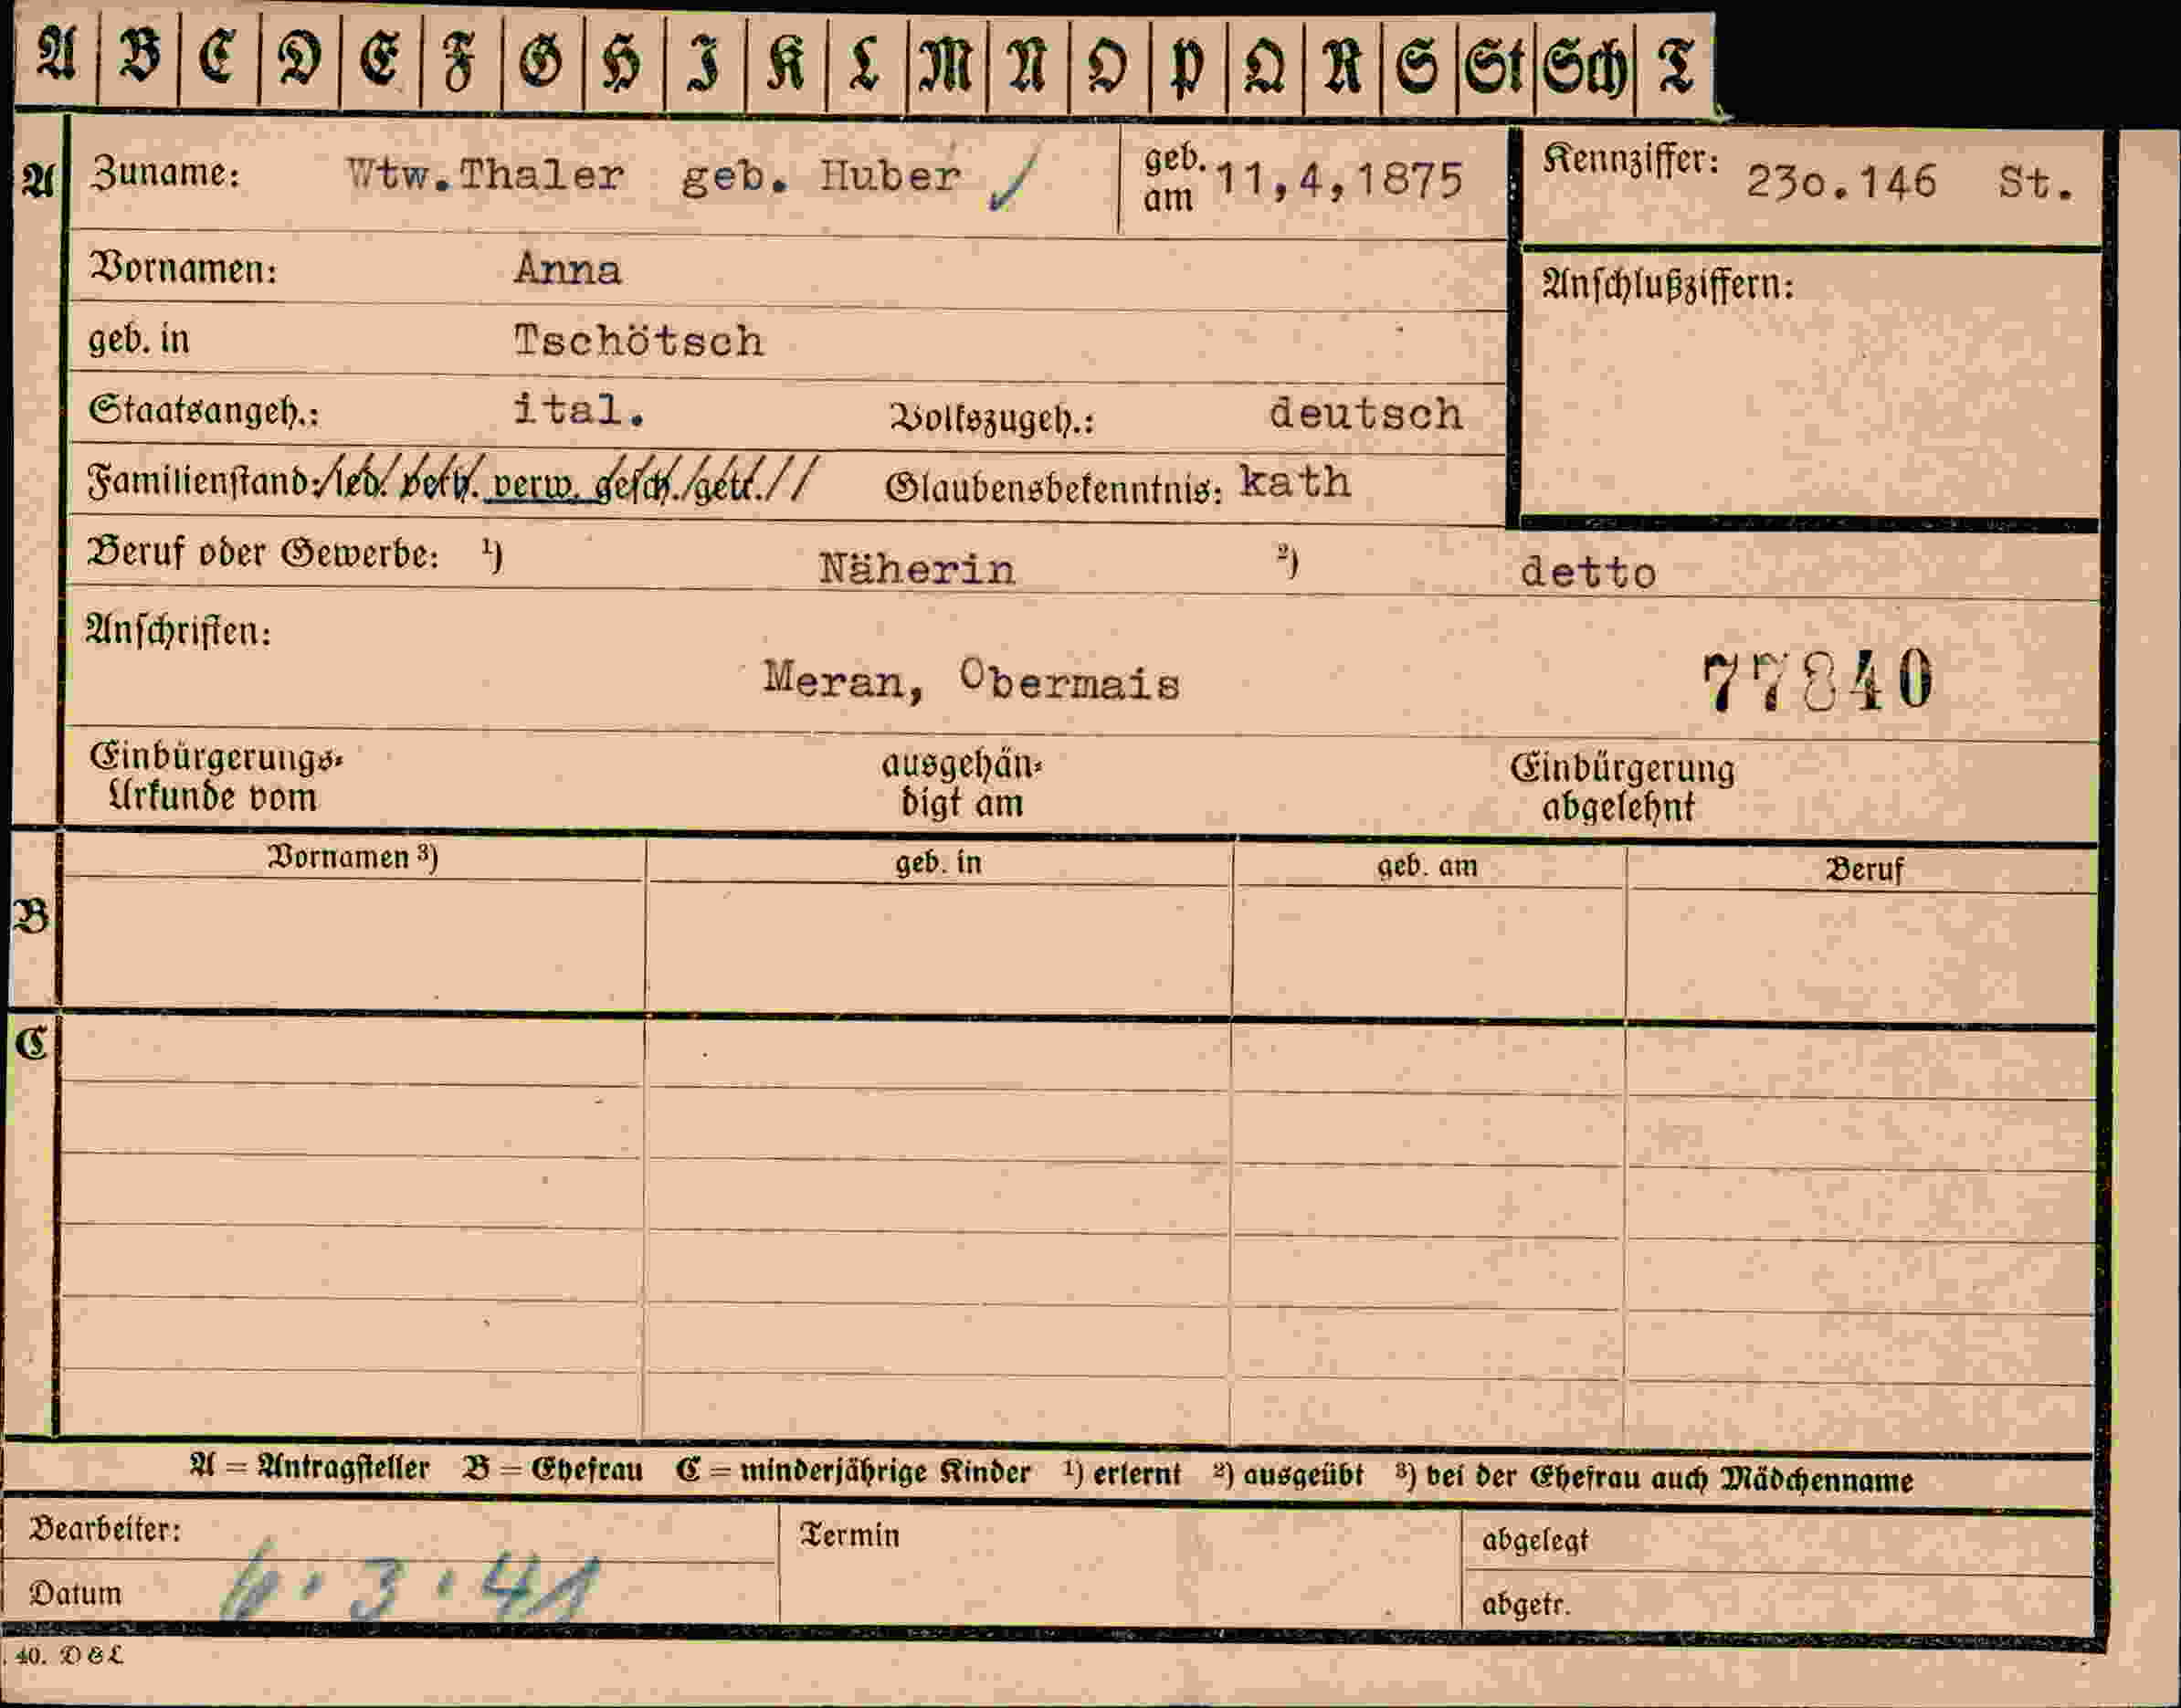 A B C D E F G H I K L M N O P Q R S St Sch T
A Zuname: Wtw.Thaler geb. Huber ✓ geb. am 11,4,1875 Kennziffer: 23o.146 St.
Vornamen: Anna Anschlußziffern:
geb. in Tschötsch
Staatsangeh.: ital. Volkszugeh.: deutsch
Familienstand: led. verh. verw. gesch. getr. Glaubensbekenntnis: kath
Beruf oder Gewerbe: ¹) Näherin ²) detto
Anschriften:
Meran, Obermais 77840
Einbürgerungs- ausgehän- Einbürgerung
Urkunde vom digt am abgelehnt
Vornamen ³) geb. in geb. am Beruf
B
C
A = Antragsteller B = Ehefrau C = minderjährige Kinder ¹) erlernt ²) ausgeübt ³) bei der Ehefrau auch Mädchenname
Bearbeiter: Termin abgelegt
Datum 6.3.41 abgetr.
40. D&L